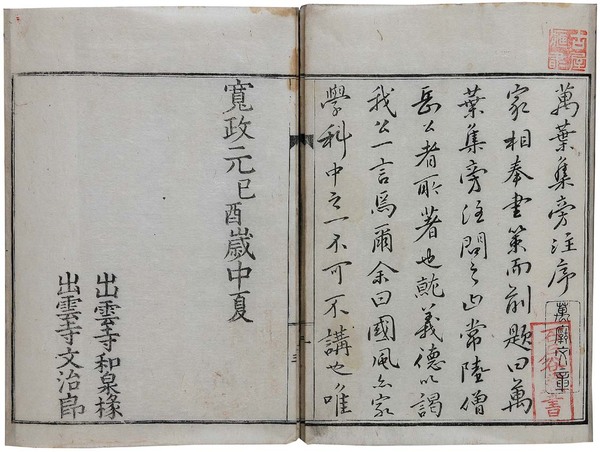 萬葉集旁注序
家相奉書策而前題曰萬
葉集旁注問之常陸僧
岳公者所著也義德以謁
我公一言爲爾余曰國風亦家
學科中之一不可不講也唯
寬政元己酉歲中夏
出雲寺和泉掾
出雲寺文治郎